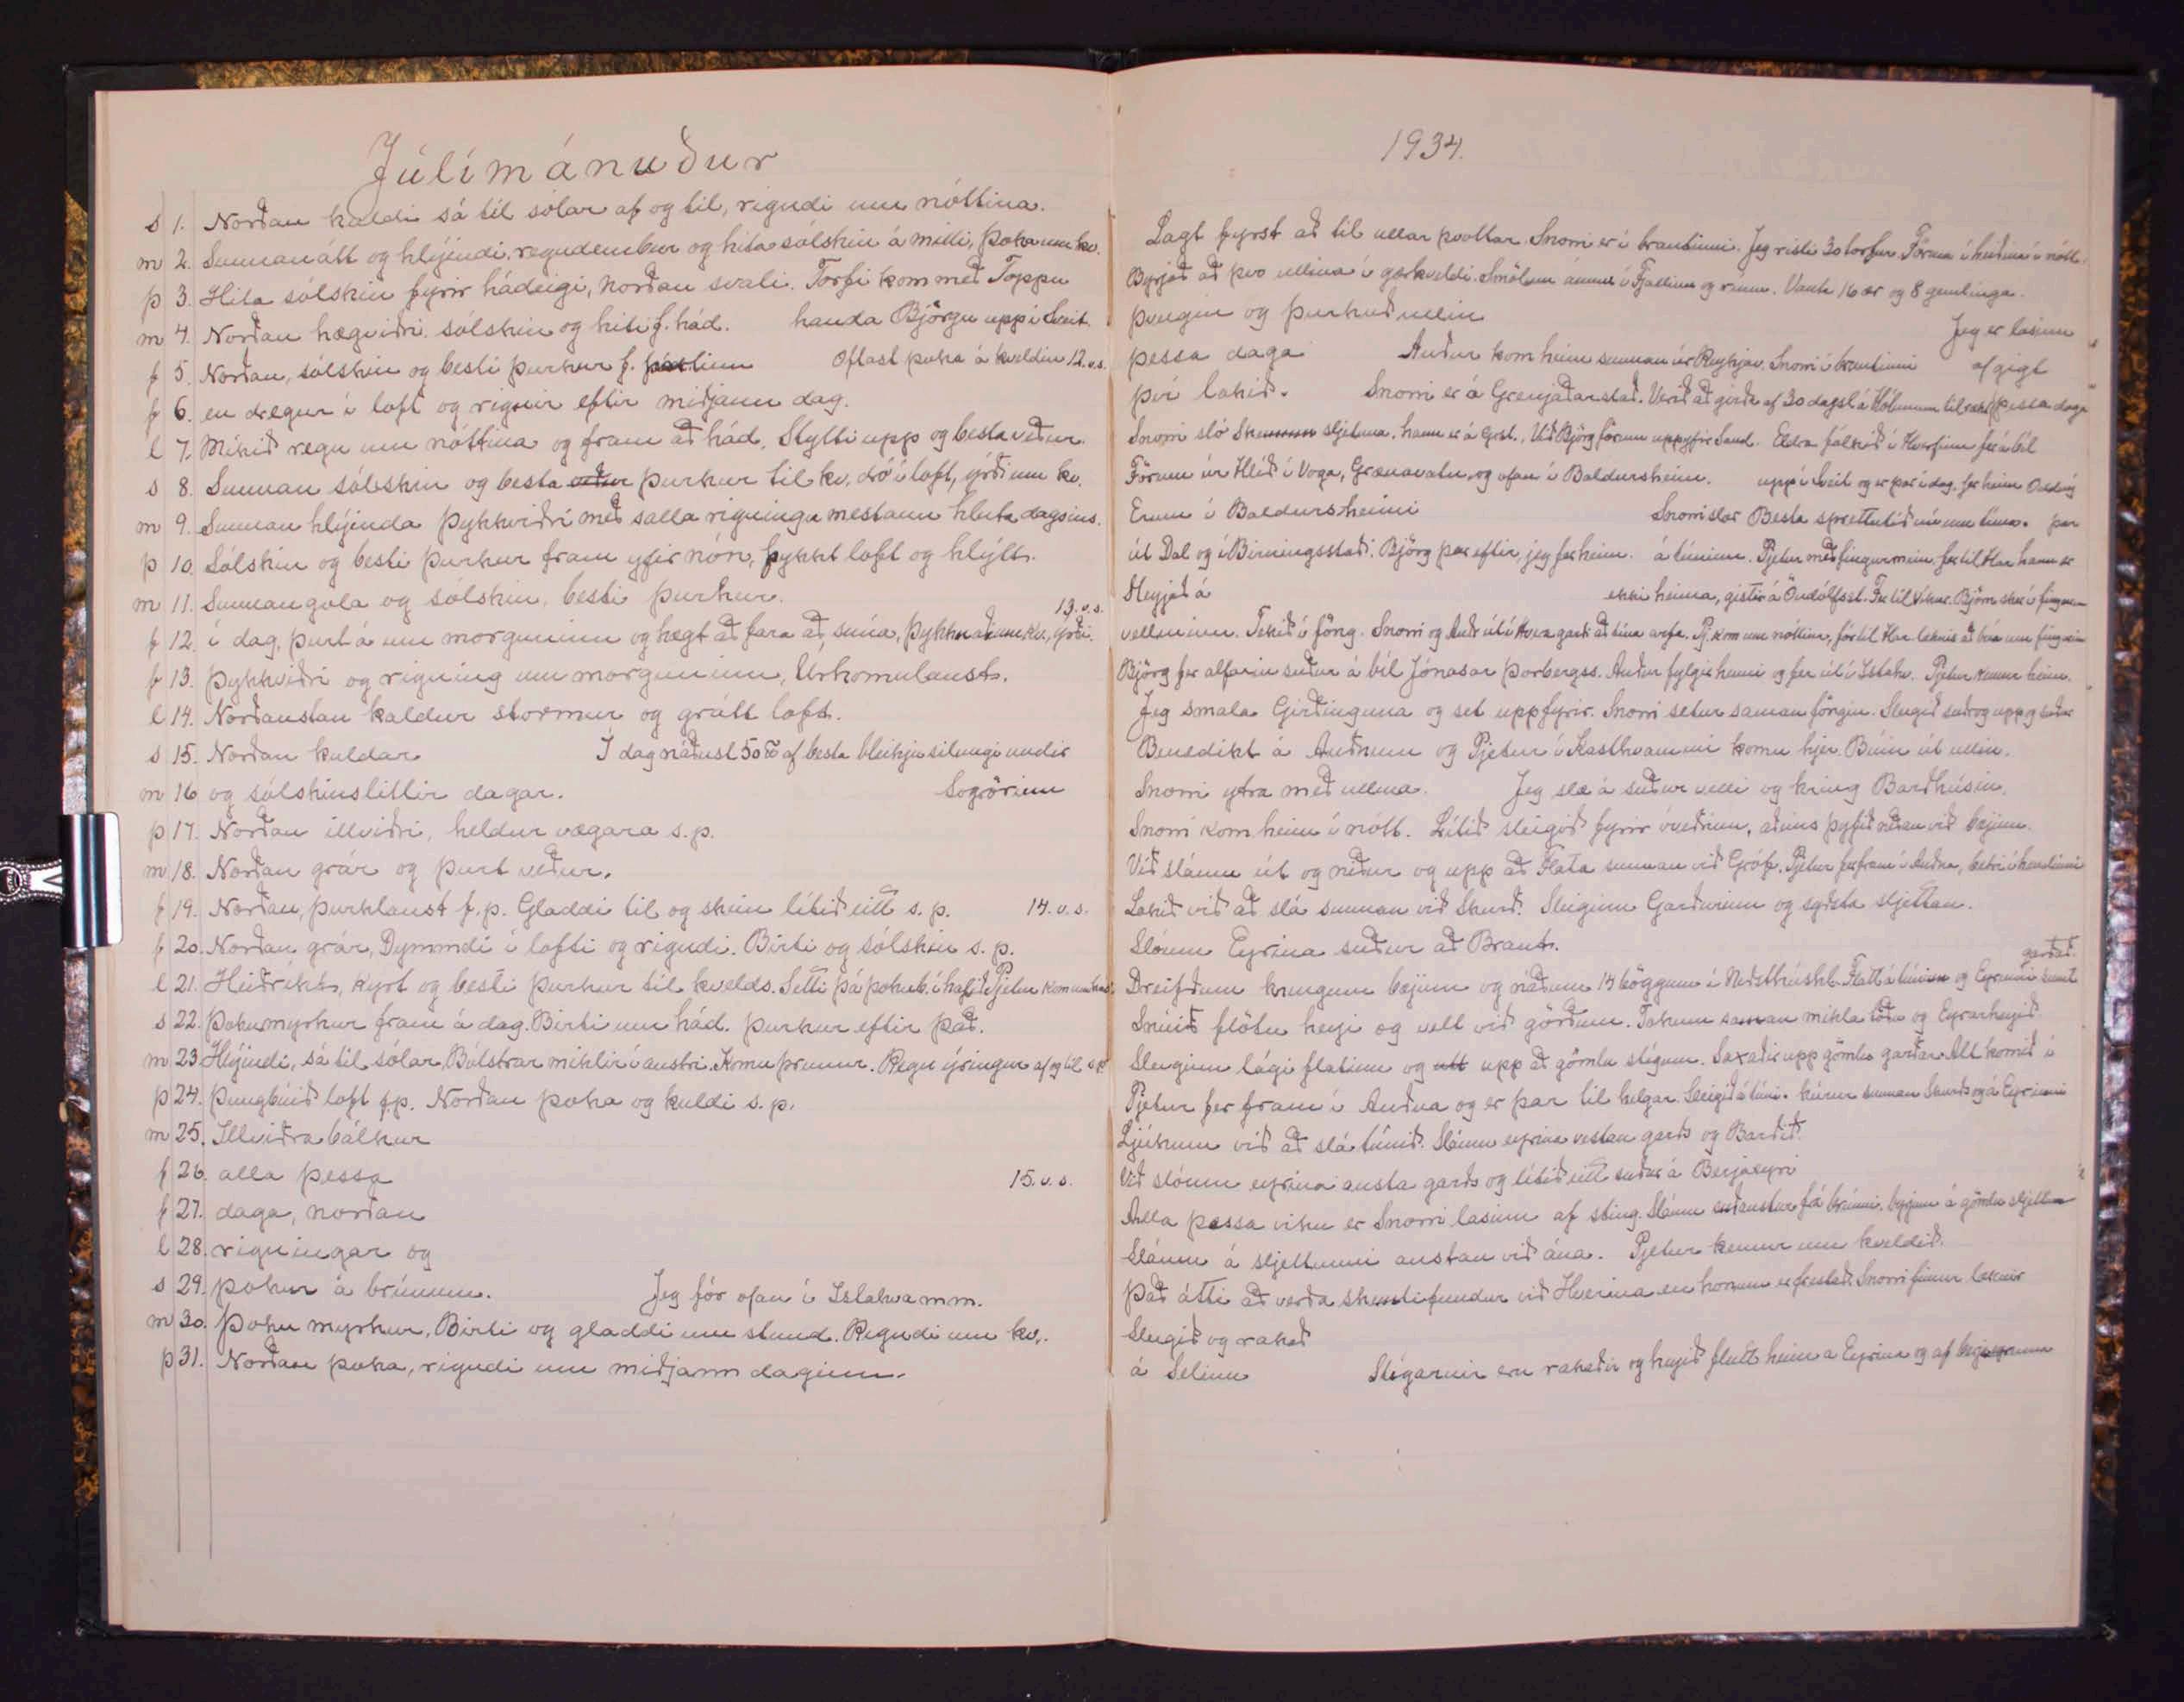 Júlímánuður
s 1. Norðan kaldi sá til sólar af og til, rigndi um nóttina.
m 2. Sunnanátt og hlýindi, regndembur og hita sólskin á milli, Þoka um kv.
þ 3. Hita sólskin fyrir hádeigi, norðan svali. Torfi kom með Toppu
m 4. Norðan hægviðri, sólskin og hiti f. hád. handa Björgu upp í Sveit.
f 5. Norðan, sólskin og besti þurkur f. partinn Oftast þoka á kveldin 12. v.s.
f 6. en dregur í loft og rignir eftir miðjann dag.
l 7. Mikið regn um nóttina og fram að hád. Stytti upp og besta veður.
s 8. Sunnan sólskin og besta veður þurkur til kv. dró í loft, ýrði um kv.
m 9. Sunnan hlýinda þykkviðri með salla rigningu mestann hluta dagsins.
þ 10. Sólskin og besti þurkur fram yfir nón, þykkt loft og hlýtt.
m 11. Sunnan gola og sólskin, besti þurkur. 13. v.s.
f 12. í dag, þurt á um morguninn og hægt að fara að snúa, þykknaði um kv., ýrði.
f 13. þykkviðri og rigning um morguninn, Úrkomulaust.
l 14. Norðaustan kaldur stormur og grátt loft.
s 15. Norðan kuldar Í dag náðust 50 af besta bleikju silungi undir
m 16 og sólskinslitlir dagar. Sogrörinu
þ 17. Norðan illviðri, heldur vægara s.p.
m 18. Norðan grár og þurt veður.
f 19. Norðan, þurklaust f.p. Gladdi til og skein lítið eitt s.p. 14. v.s.
f 20. Norðan grár, Dymmdi í lofti og rigndi. Birti og sólskin s.p.
l 21. Heiðríkt, kyrt og besti þurkur til kvelds. Setti þá þokub. í hafið Pjetur kom um kv.
s 22. Þokumyrkur fram á dag. Birti um hád. þurkur eftir það.
m 23 Hlýindi, sá til sólar, Bólstrar miklir í austri. Komu þrumur. Regn ýringur af og til s.p.
þ 24. Þungbúið loft f.p. Norðan þoka og kuldi s.p.
m 25. Illviðra bálkur
f 26. alla þessa 15. v.s.
f 27. daga, norðan
l 28. rigningar og
s 29. þokur á brúnum. Jeg fór ofan í Íslahvamm.
m 30. Þoku myrkur, Birti og gladdi um stund. Regndi um kv.
þ 31. Norðan þoka, rigndi um miðjann daginn.
1934.
Lagt fyrst að til ullar þvottar. Snorri er í brautinni. Jeg risti 30 torfur. Förum í heiðina í nótt.
Byrjað að þvo ullina í gærkveldi. Smölum ánum í Fjallinu og rúum. Vanta 16 ær og 8 gemlinga.
þvegin og þurkuð ullin Jeg er lasinn
þessa daga Auður kom heim sunnan úr Reykjav. Snorri í brautinni af gigt
því lokið. Snorri er á Grenjaðarstað. Verið að girða af 30 dagsl. á Hólmunum þessa daga
Snorri sló sljetuna, hann er á Grst., Við Björg förum upp yfir Sand. Eldra fólkið í Hverfinu fer á bíl
Förum úr Hlíð í Voga, Grænavatn, og ofan í Baldursheim. upp í Sveit og er þar í dag, fer heim
Erum í Baldursheimi Snorri slær Besta sprettutíð nú um tíma.
út Dal og í Birningsstaði. Björg þar eftir, jeg fer heim. á túninu. Pjetur með fingurmein, fer til Har hann er
Heyjað á ekki heima, gistir á Öndólfsst. Fer til Víkur. Björn sker í fingurinn
vellinum. Tekið í föng. Snorri og Auð. út í Hvera garð að tína arfa. Pj. kom um nóttina, fór til Har. læknis að búa um fingurinn
Björg fer alfarin suður á bíl Jónasar Þorbergss. Auður fylgir henni og fer út í Íslahv. Pjetur kemur heim.
Jeg smala Girðinguna og set uppfyrir. Snorri setur saman föngin. Slegið suðrog uppg
Benedikt á Auðnum og Pjetur í Kasthvammi komu hjer. Búin út ullin.
Snorri ytra með ullina. Jeg slæ á suður velli og kring Barðhúsin.
Snorri kom heim í nótt. Lítið sleigið fyrir óveðrinu, aðeins þýfið neðan við bæjinn.
Við sláum út og neður og upp að Flata sunnan við Gróf. Pjetur fer fram í Auðna, betri í hendinni
Lokið við að slá sunnan við Skurð. Sleiginn Garðurinn og syðsta sljettan.
Slóum Eyrina suður að Braut. garðað.
Dreifðum kringum bæjinn og náðum 14 böggum í Neðsthúshl. Flatt á túninu og Eyrinni
Snúið flötu heyi og vell við görðum. Tökum saman mikla töðu og Eyrarheyið.
Sleiginn lági flatinn og utt upp að gömlu stígum. Saxaðir upp gömlu garðar Alt komið í
Pjetur fer fram í Auðna og er þar til helgar. Sleigið á túni. kúrur sunnan Skurðs og á Eyrinni
Ljúkum við að slá túnið. Sláum eyrina vestan garðs og Barðið.
Við slóum eyrina austa garðs og lítið eitt suður á Berjaeyri
Alla þessa viku er Snorri lasinn af sting. Sláum suðaustur frá brúnni, byrjum á gömlu sljettu
Sláum á sljettunni austan við ána. Pjetur kemur um kveldið.
Það átti að verða skemtifundur við Hverina en honum er frestað. Snorri finnur læknir
Slegið og rakað
á Selinu Stígarnir eru rakaðir og heyið flutt heim á Eyrina og af